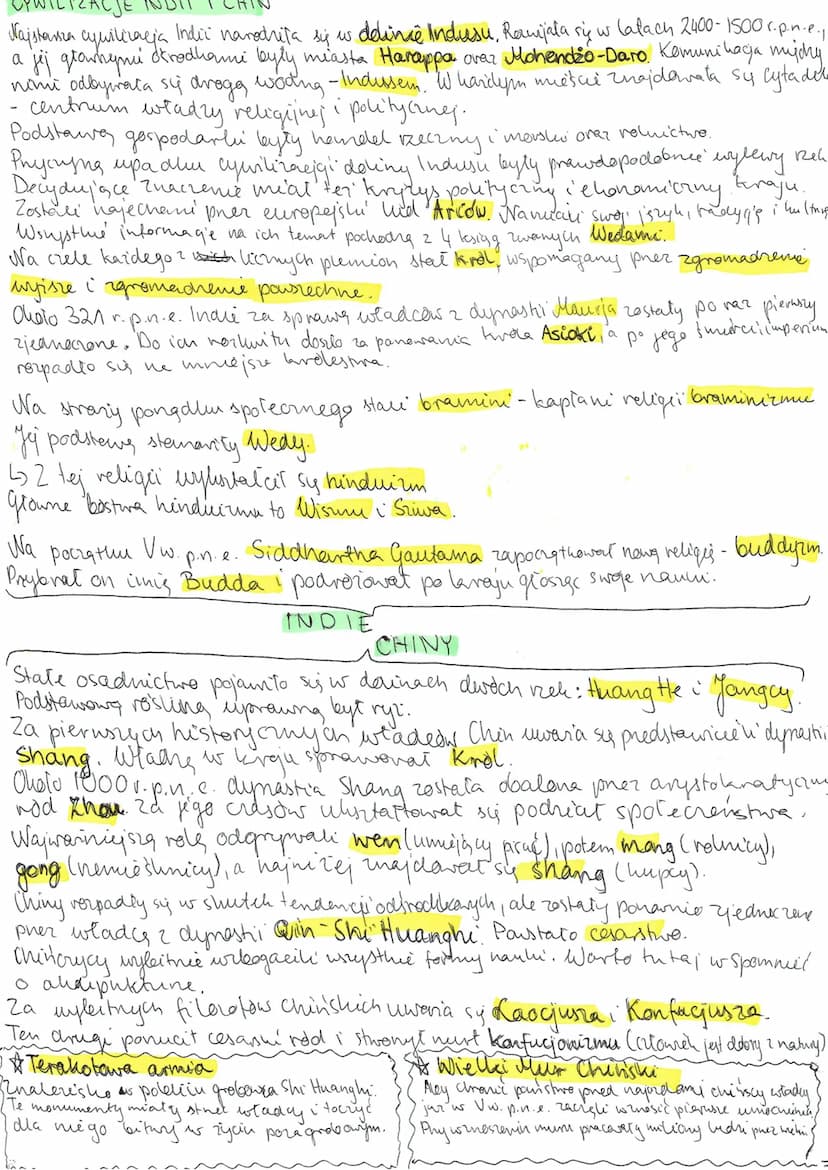 CYWILIZACJE INDII I CHIN
Najstarsza cywilizacja Indii narodziła się w dolinie Indusu. Rozwijała się w latach 2400-1500 r.p.n.e.,
a jej głównymi ośrodkami były miasta Harappa oraz Mohendżo-Daro. Komunikacja między
nimi odbywała się drogą wodną - Indusem. W każdym mieście znajdowała się cytadela
- centrum władzy religijnej i politycznej.
Podstawą gospodarki były handel rzeczny i morski oraz rolnictwo.
Przyczyną upadku cywilizacji doliny Indusu były prawdopodobnie wylewy rzek.
Decydujące znaczenie miał też kryzys polityczny i ekonomiczny kraju.
Zostali najechani przez europejski lud Ariów. Narzucili swój język, tradycję i kulturę
Wszystkie informacje na ich temat pochodzą z 4 ksiąg zwanych Wedami.
Na czele każdego z licznych plemion stał król, wspomagany przez zgromadzenie
wyższe i zgromadzenie powszechne.
Około 321 r.p.n.e. Indie za sprawą władców z dynastii Maurja zostały po raz pierwszy
zjednoczone. Do ich rozkwitu doszło za panowania króla Asioki, a po jego śmierci imperium
rozpadło się na mniejsze królestwa.
Na straży porządku społecznego stali bramini - kapłani religii braminizmu
Jej podstawę stanowiły Wedy.
↳ Z tej religii wykształcił się hinduizm
Główne bóstwa hinduizmu to Wisznu i Sziwa.
Na początku V w. p.n.e. Siddhartha Gautama zapoczątkował nową religię - buddyzm.
Przybrał on imię Budda i podróżował po kraju głosząc swoje nauki.
INDIE
CHINY
Stałe osadnictwo pojawiło się w dolinach dwóch rzek: Huang He i Jangcy.
Podstawową rośliną uprawną był ryż.
Za pierwszych historycznych władców Chin uważa się przedstawicieli dynastii
Shang. Władzę w kraju sprawował Król.
Około 1000 r. p.n.e. dynastia Shang została obalona przez arystokratyczny
ród Zhou. Za jego czasów ukształtował się podział społeczeństwa.
Najważniejszą rolę odgrywali wen (umiejący pisać), potem nong (rolnicy),
gong (rzemieślnicy), a najniżej znajdował się shang (kupcy).
Chiny rozpadły się w skutek tendencji odśrodkowych, ale zostały ponownie zjednoczone
przez władcę z dynastii Qin - Shi Huanghi. Powstało cesarstwo.
Chińczycy wybitnie wzbogacili wszystkie formy nauki. Warto tutaj wspomnieć
o akupunkturze.
Za wybitnych filozofów chińskich uważa się Laocjusza i Konfucjusza.
Ten drugi porzucił cesarski ród i stworzył nurt konfucjonizmu (człowiek jest dobry z natury)
☆ Terakotowa armia
Znalezisko w pobliżu grobowca Shi Huanghi.
Te monumenty miały strzec władcy i toczyć
dla niego bitwy w życiu pozagrobowym.
☆ Wielki Mur Chiński
Aby chronić państwo przed najazdami chińscy władcy
już w V w. p.n.e. zaczęli wznosić pierwsze umocnienia
Przy wznoszeniu muru pracowały miliony ludzi przez wieki